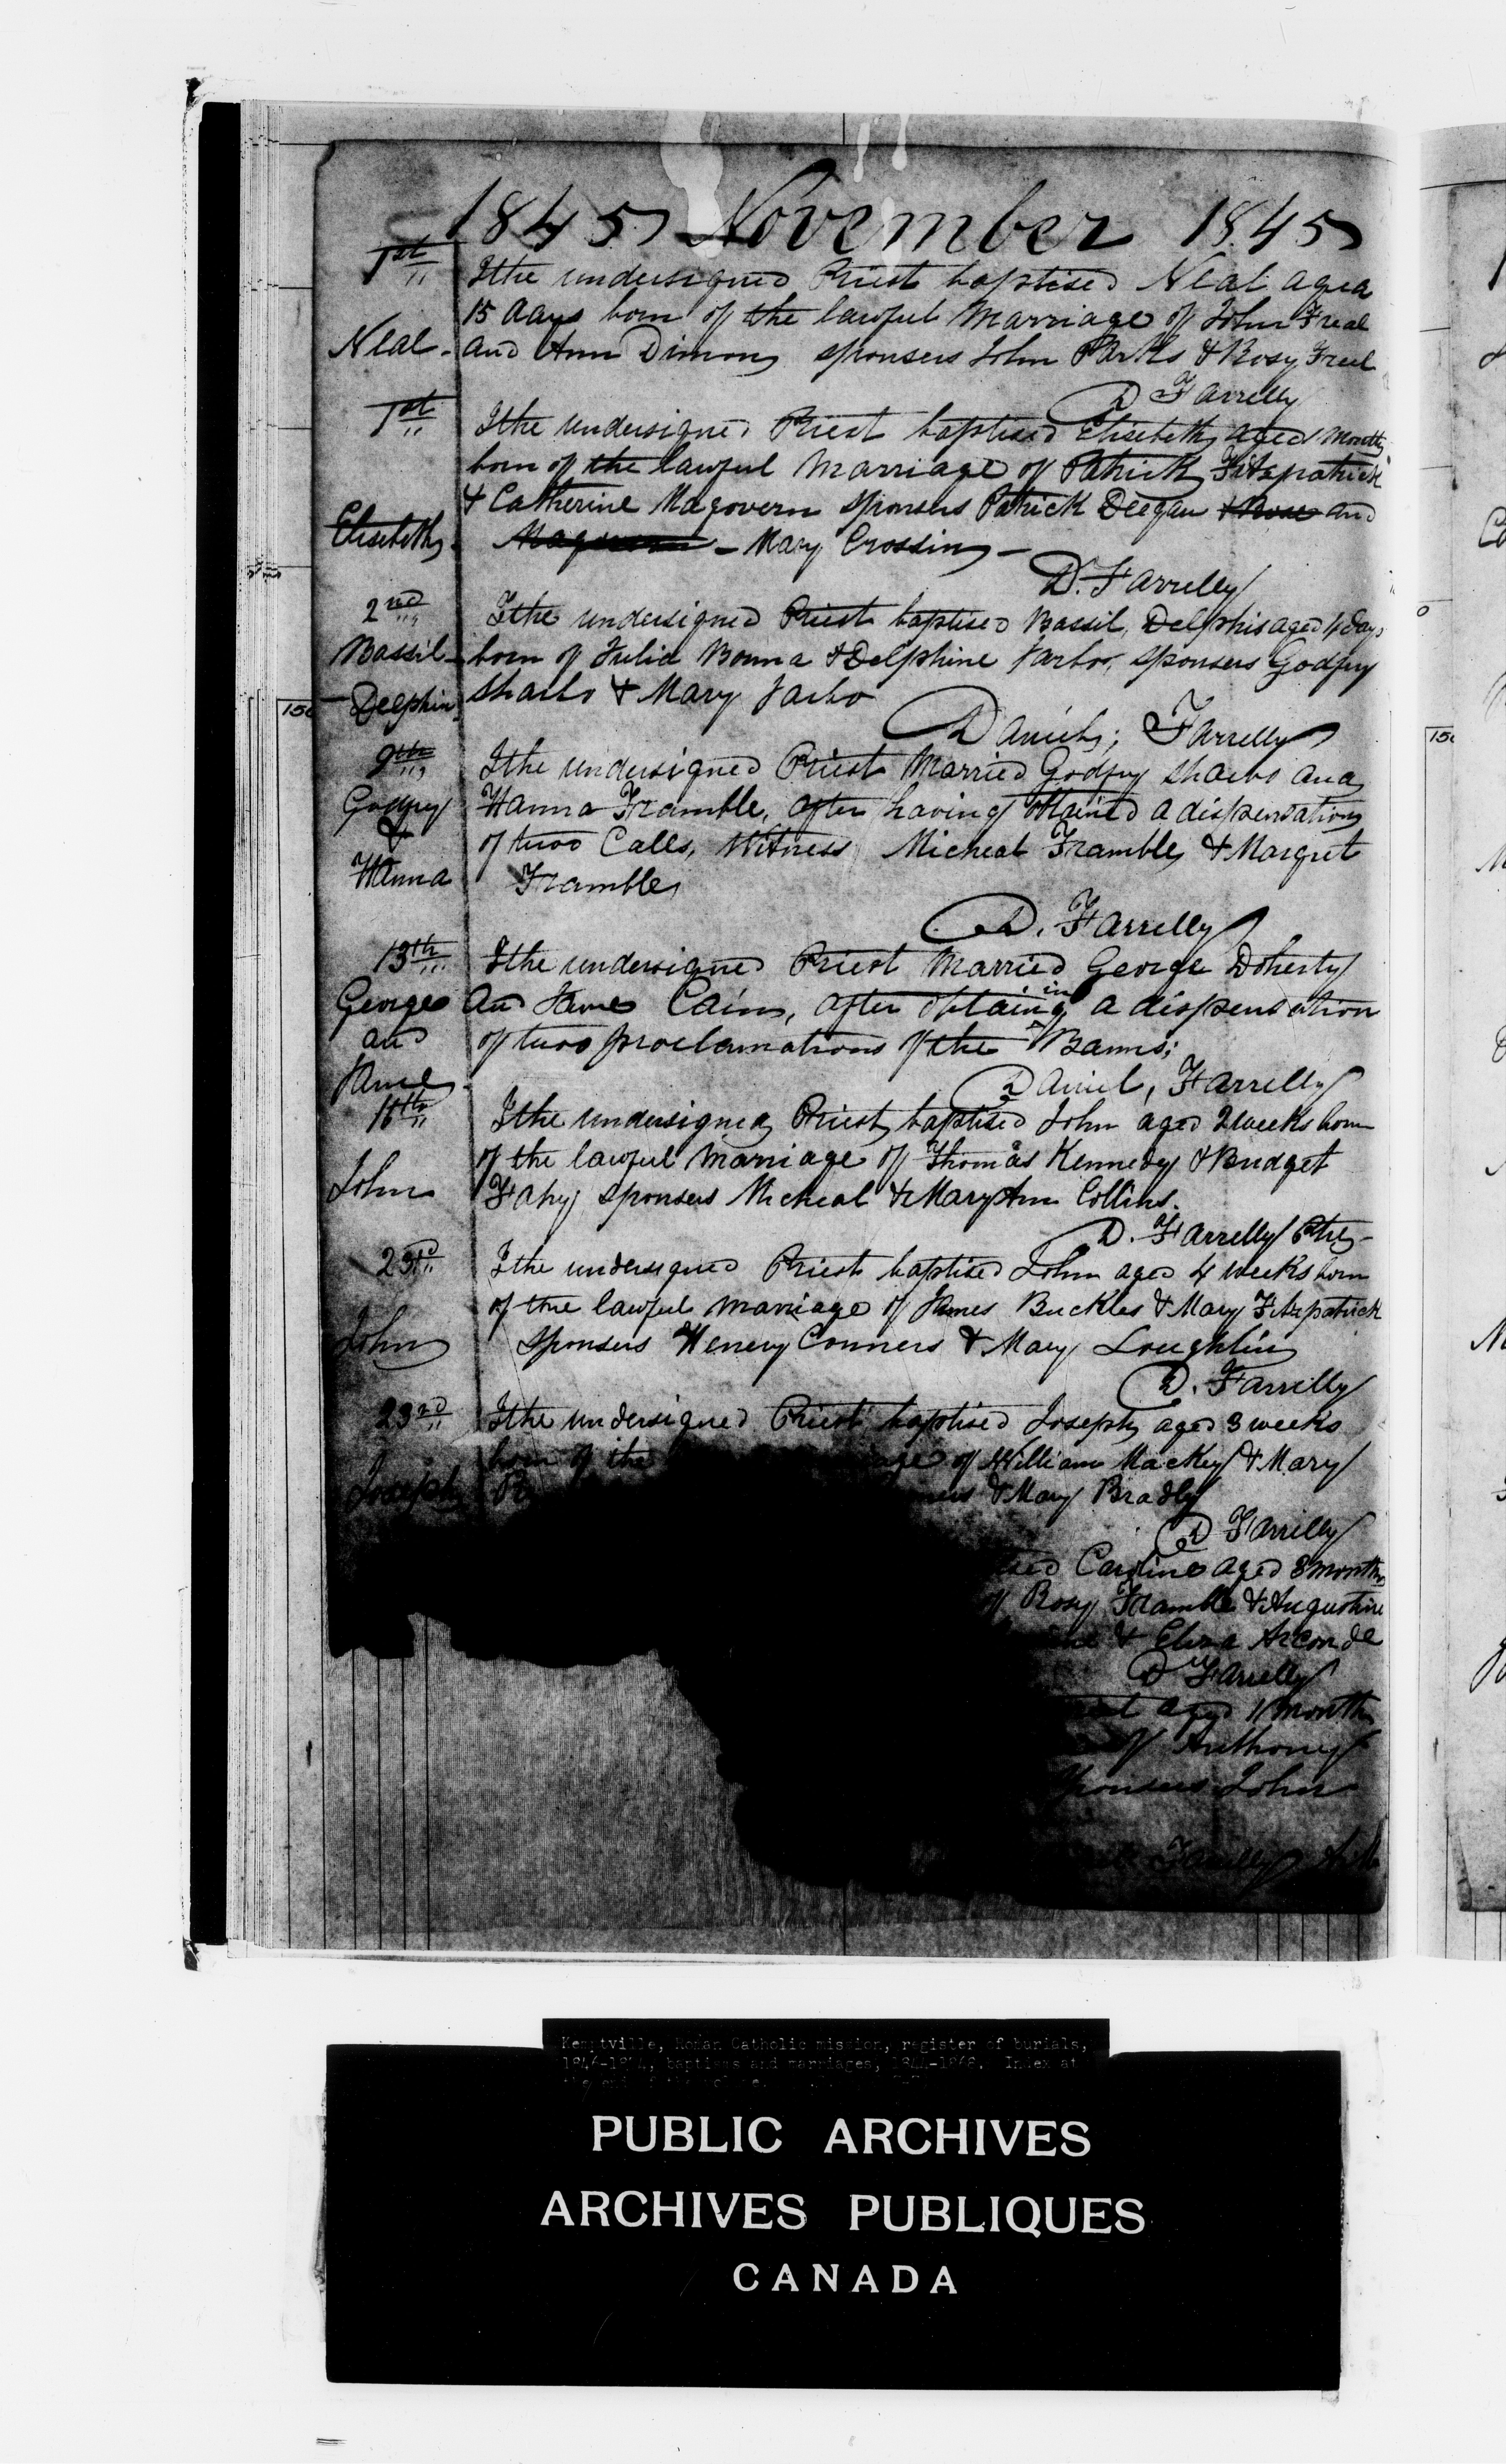 1845 November 1845
1st I the undersigned Priest baptised Neal aged
15 days born of the lawful Marriage of John Freal
Neal - and Ann Dimon sponsers John Parks & Rosy Freel
D Farrelly
1st I the undersigned Priest baptised Elisebeth aged 1 Month
born of the lawful Marriage of Patrick Fitzpatrick
& Catherine Magovern sponsers Patrick Deegan & Rose and
Elisebeth - Magovern - Mary Crossin -
D. Farrelly
2nd I the undersigned Priest baptised Bassil, Delphis aged 4 days
Bassil - born of Julia Bonna & Delphine Jarbo, sponsers Godfry
Delphin Sharbo & Mary Jarbo
Daniel; Farrelly
9th I the undersigned Priest Married Godfry Sharbo and
Godfry Hanna Framble, after having obtained a dispensation
& of two Calls, Witness Micheal Framble & Margret
Hanna Framble
D. Farrelly
13th I the undersigned Priest Married George Doherty
George and Jane Cain, after obtaining a dispensation
and of two proclamations of the Banns;
Jane - Daniel, Farrelly
16th I the undersigned Priest baptised John aged 2 weeks born
of the lawful Marriage of Thomas Kennedy & Bridget
John Fahy sponsers Micheal & Mary Ann Collins.
D. Farrelly
23rd I the undersigned Priest baptised John aged 4 weeks born
of the lawful marriage of James Buckles & Mary Fitzpatrick
John sponsers Henery Conners & Mary Loughlin
D. Farrelly
23rd I the undersigned Priest baptised Joseph aged 3 weeks
born of the of William Mackey & Mary
Joseph & Mary Bradly
D Farrelly
Caroline aged 8 months
of Rosy Framble & Augustine
& Eliza
D Farrelly
aged 1 month
of Anthony
sponsers John
Farrelly
150
150
Kemptville, Roman Catholic mission, register of burials,
baptisms and marriages, Index at
PUBLIC ARCHIVES
ARCHIVES PUBLIQUES
CANADA